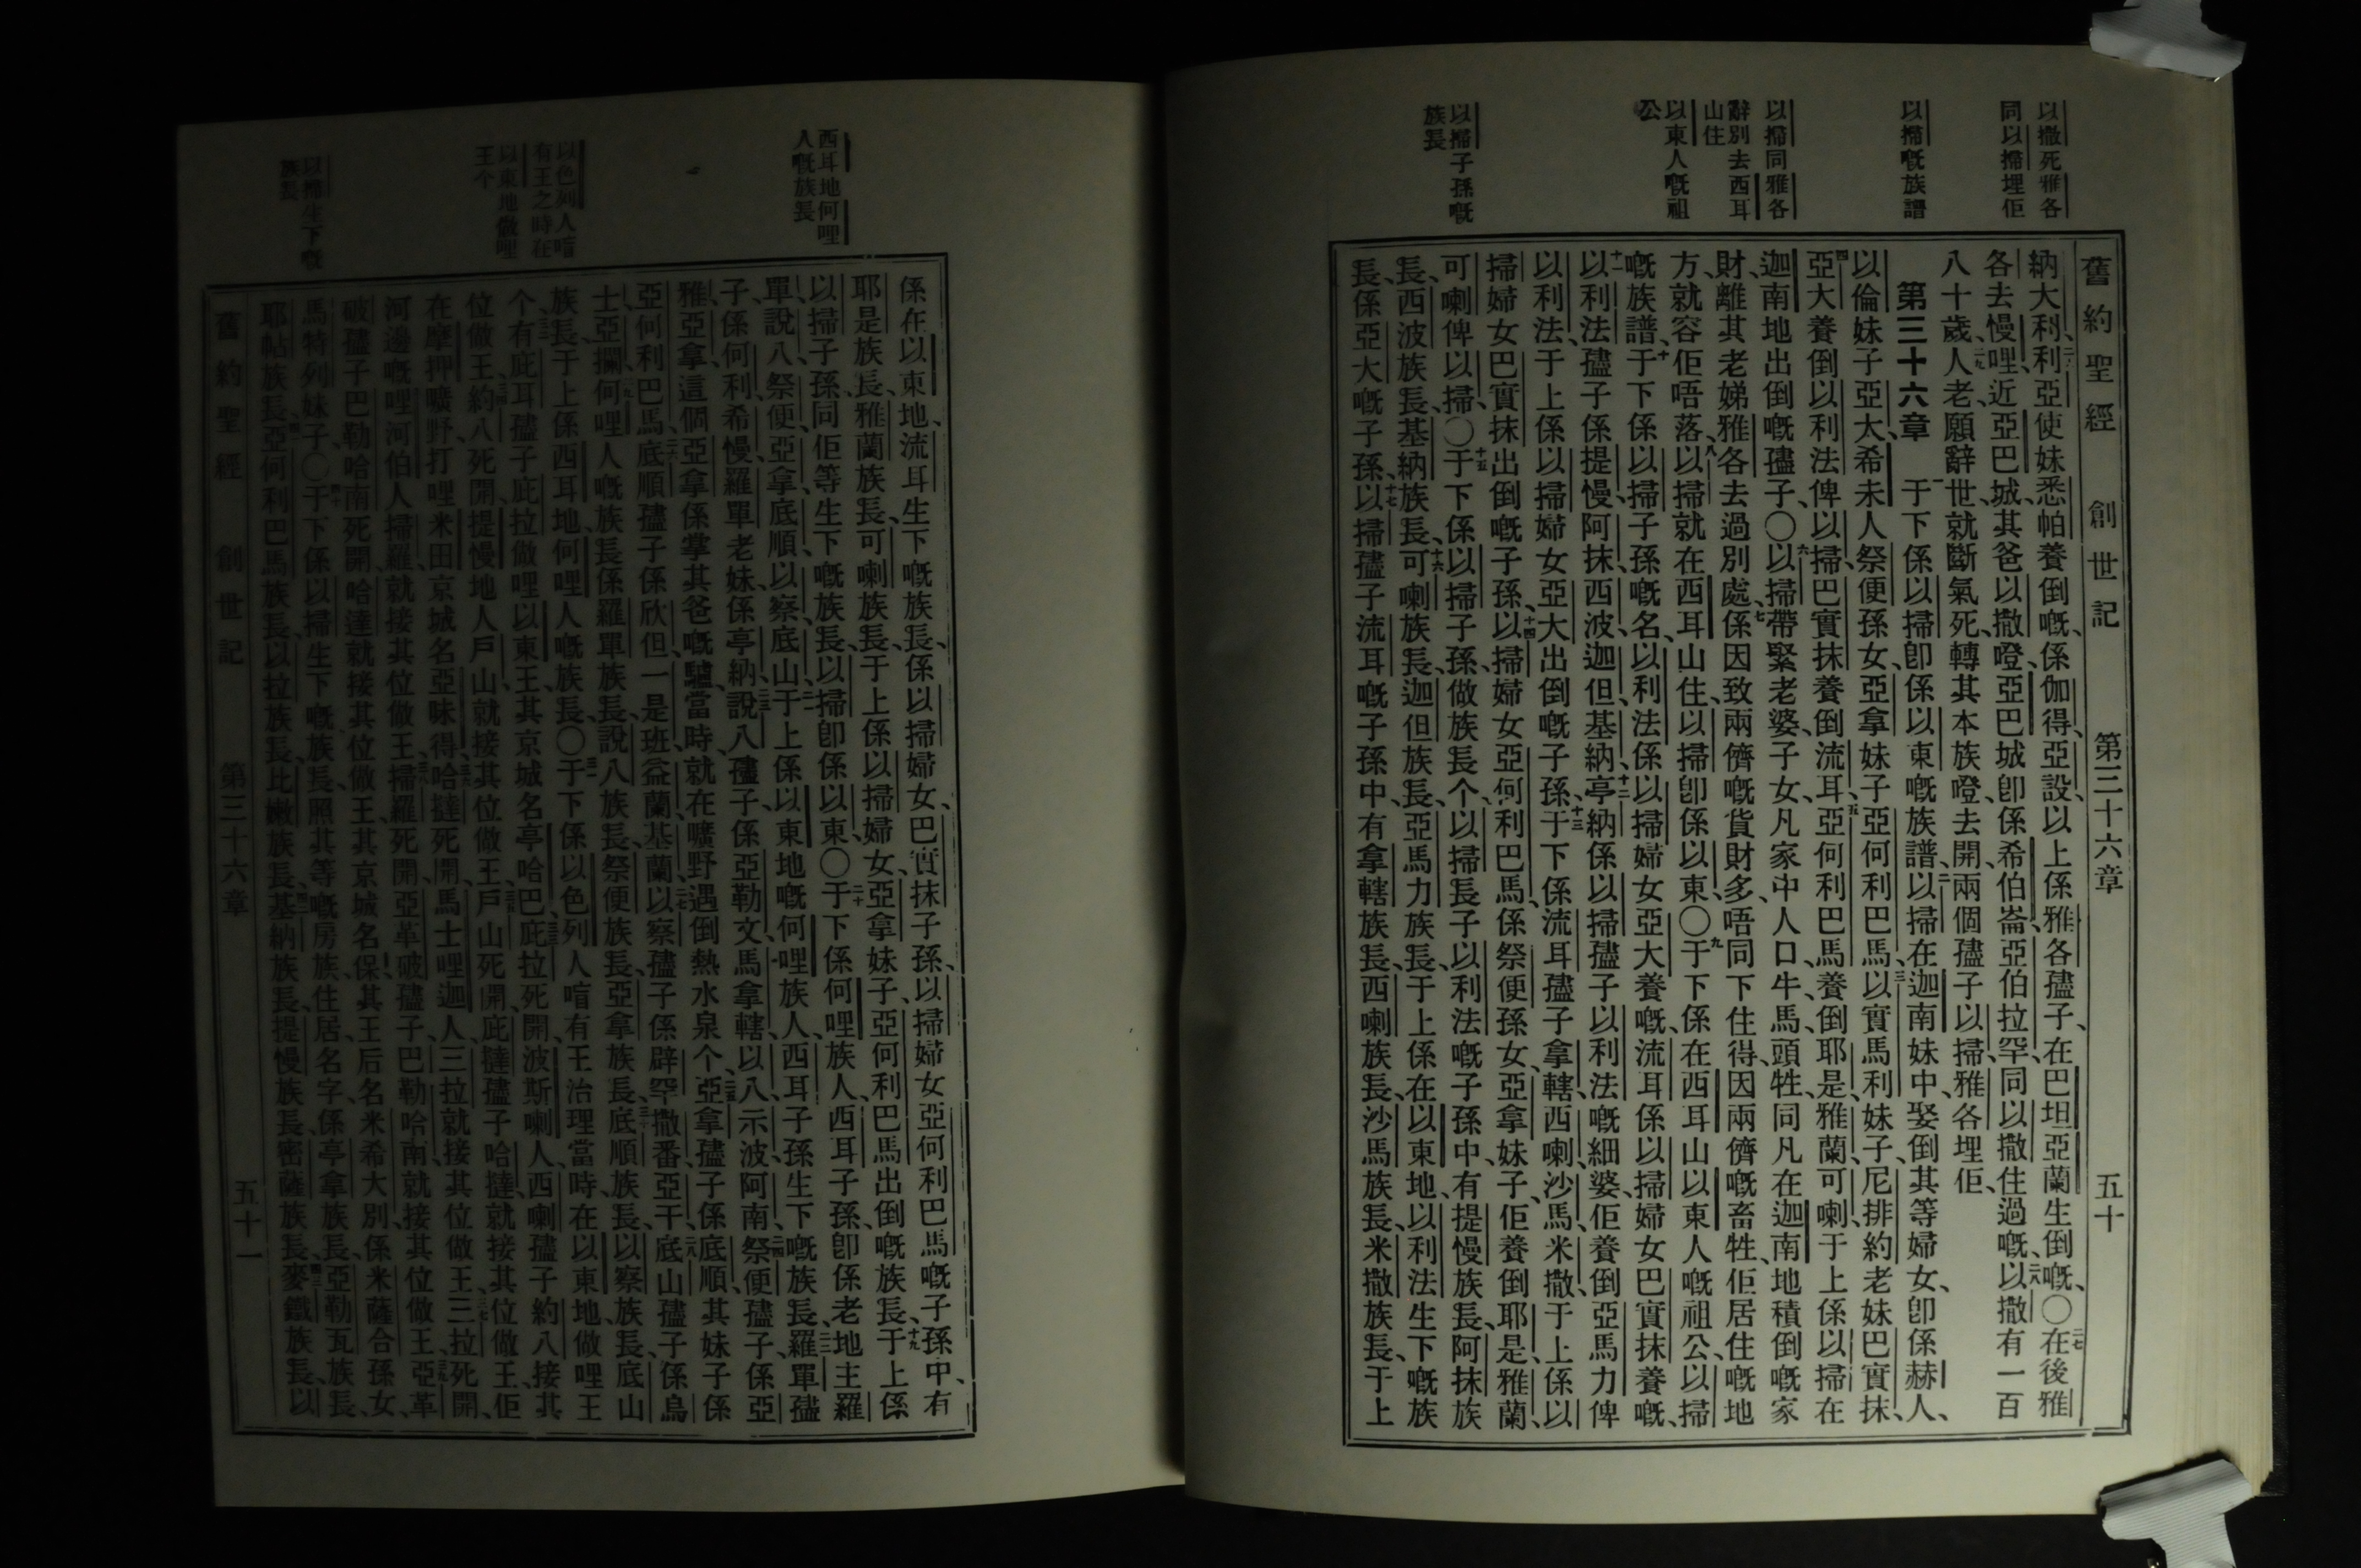 以撒死雅各
同以掃埋佢
以掃嘅族譜
以掃同雅各
辭別去西耳
山住
以東人嘅祖
公
以掃子孫嘅
族長
舊約聖經 創世記 第三十六章 五十
納大利、利亞使妹悉帕養倒嘅、係伽得、亞設、以上係雅各孻子、在巴坦亞蘭生倒嘅、〇二七在後雅
各去慢哩、近亞巴城、其爸以撒噔、亞巴城卽係希伯崙、亞伯拉罕、同以撒住過嘅、二八以撒有一百
八十歲、二九人老、願辭世、就斷氣死、轉其本族噔去開、兩個孻子以掃、雅各埋佢、
第三十六章 一于下係以掃卽係以東嘅族譜、二以掃在迦南妹中、娶倒其等婦女、卽係赫人、
以倫妹子亞太、希未人祭便孫女、亞拿妹子亞何利巴馬、三以實馬利妹子、尼排約老妹巴實抹、
四亞大養倒以利法、俾以掃、巴實抹養倒流耳、五亞何利巴馬、養倒耶是、雅蘭、可喇、于上係以掃在
迦南地出倒嘅孻子、〇六以掃帶緊老婆、子女、凡家中人口、牛、馬、頭牲、同凡在迦南地積倒嘅家
財、離其老娣雅各、去過別處、七係因致兩儕嘅貨財多、唔同下住得、因兩儕嘅畜牲、佢居住嘅地
方、就容佢唔落、八以掃就在西耳山住、以掃卽係以東、〇九于下係在西耳山以東人嘅祖公、以掃
嘅族譜、十于下係以掃子孫嘅名、以利法係以掃婦女亞大養嘅、流耳係以掃婦女巴實抹養嘅、
十一以利法孻子係提慢、阿抹、西波、迦但、基納、十二亭納係以掃孻子以利法嘅細婆、佢養倒亞馬力俾
以利法、于上係以掃婦女亞大出倒嘅子孫、十三于下係流耳孻子、拿轄、西喇、沙馬、米撒、于上係以
掃婦女巴實抹出倒嘅子孫、十四以掃婦女亞何利巴馬、係祭便孫女、亞拿妹子、佢養倒耶是、雅蘭、
可喇俾以掃、〇十五于下係以掃子孫、做族長个、以掃長子以利法嘅子孫中、有提慢族長、阿抹族
長、西波族長、基納族長、十六可喇族長、迦但族長、亞馬力族長、于上係在以東地、以利法生下嘅族
長、係亞大嘅子孫、十七以掃孻子流耳嘅子孫中、有拿轄族長、西喇族長、沙馬族長、米撒族長、于上
西耳地何哩
人嘅族長
以色列人唷
有王之時在
以東地做哩
王个
以掃生下嘅
族長
係在以東地、流耳生下嘅族長、係以掃婦女、巴實抹子孫、以掃婦女亞何利巴馬嘅子孫中、有
耶是族長、雅蘭族長、可喇族長、于上係以掃婦女、亞拿妹子、亞何利巴馬出倒嘅族長、十九于上係
以掃子孫、同佢等生下嘅族長、以掃卽係以東、〇二十于下係何哩族人西耳子孫、卽係老地主羅
單、說八、祭便、亞拿、底順、以察、底山、于上係以東地嘅何哩族人、西耳子孫生下嘅族長、羅單孻
子、係何利、希慢、羅單老妹、係亭納、說八孻子、係亞勒文、馬拿轄、以八、示波、阿南、祭便孻子、係亞
雅、亞拿、這個亞拿、係掌其爸嘅驢、當時就在曠野遇倒熱水泉个、亞拿孻子係底順、其妹子係
亞何利巴馬、底順孻子係欣但、一是班、益蘭、基蘭、以察孻子係辟罕、撒番、亞干、底山孻子、係烏
士、亞攔、何哩人嘅族長係羅單族長、說八族長、祭便族長、亞拿族長、底順族長、以察族長、底山
族長、于上係西耳地、何哩人嘅族長、〇于下係以色列人唷有王治理當時、在以東地做哩王
个、有庇耳孻子、庇拉做哩以東王、其京城名亭哈巴、庇拉死開、波斯喇人、西喇孻子約八接其
位做王、約八死開、提慢地人戶山就接其位做王、戶山死開、庇撻孻子哈撻、就接其位做王、佢
在摩押曠野、打哩米田、京城名亞昧得、哈撻死開、馬士哩迦人三拉就接其位做王、三拉死開、
河邊嘅哩河伯人掃羅就接其位做王、掃羅死開、亞革破孻子、巴勒哈南、就接其位做王、亞革
破孻子巴勒哈南死開、哈達就接其位做王、其京城名保、其王后名米希大別、係米薩合孫女、
馬特列妹子、〇于下係以掃生下嘅族長、照其等嘅房族、住居、名字、係亭拿族長、亞勒瓦族長、
耶帖族長、亞何利巴馬族長、以拉族長、比嫩族長、基納族長、提慢族長、密薩族長、麥鐵族長、以
舊約聖經 創世記 第三十六章 五十一